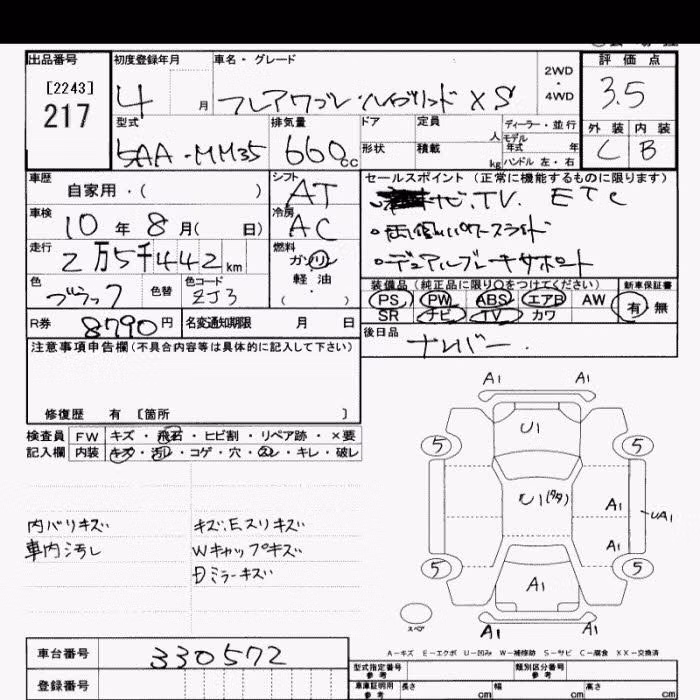 出品番号 初度登録年月 車名・グレード 評価点
[2243]
217
4 月 フレアワゴン ハイブリッド XS
2WD
・
4WD
3.5
型式 排気量 ドア 定員 人 ディーラー・並行 外装 内装
モデル年式 年
形状 積載 kg ハンドル 左・右
5AA-MM53S 660cc
C B
車歴 自家用・( )
シフト AT
セールスポイント(正常に機能するものに限ります)
ナビ.TV. ETC
・両側パワースライド
・デュアルブレーキサポート
車検 10年 8月( 日)
冷房 AC
走行 2万5千442km
燃料 ガソリン 軽油 ・( )
色 ブラック 色替 色コード ZJ3
装備品(純正品に限り○をつけてください) 新車保証書
PS PW ABS エアB AW
SR ナビ TV カワ
有・無
R券 8790円 名変通知期限 月 日
後日品 ナンバー.
注意事項申告欄(不具合内容等は具体的に記入して下さい)
修復歴 有 [箇所 ]
検査員 FW キズ・飛石・ヒビ割・リペア跡・×要
記入欄 内装 キズ・汚レ・コゲ・穴・スレ・キレ・破レ
内バリキズ キズ.Eスリキズ
車内汚レ Wキャップキズ
Dミラーキズ
A1 A1
U1
5 5
U1(ワタ)
A1
UA1
A1
5 5
A1
スペア
A1 A1
A-キズ E-エクボ U-凹み W-補修跡 S-サビ C-腐食 XX-交換済
車台番号 330572
登録番号
型式指定番号 参考 類別区分番号 参考
車庫証明用 参考 長さ cm 幅 cm 高さ cm